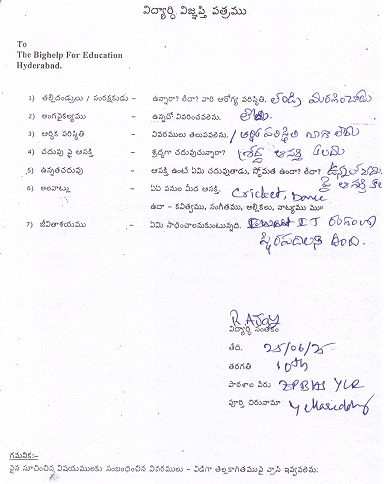 విద్యార్థి విజ్ఞప్తి పత్రము
To
The Bighelp For Education
Hyderabad.
1) తల్లిదండ్రులు / సంరక్షకుడు - ఉన్నారా? లేదా? వారి ఆరోగ్య పరిస్థితి. తండ్రి మరణించాడు
2) అంగవైకల్యము - ఉన్నదో వివరించవలెను. లేదు.
3) ఆర్థిక పరిస్థితి - వివరములు తెలుపవలెను. / ఆర్థిక పరిస్థితి బాగా లేదు
4) చదువు పై ఆసక్తి - శ్రద్ధగా చదువుచున్నారా? శ్రద్ధ ఆసక్తి కలదు
5) ఉన్నతచదువు - ఆసక్తి ఉంటే ఏమి చదువుతాడు, స్తోమత ఉందా? లేదా? పై ఆసక్తి
6) అలవాట్లు - ఏఏ పనుల మీద ఆసక్తి. Cricket, Dance
ఉదా - కవిత్వము, సంగీతము, అల్లికలు, నాట్యము ము॥
7) జీవితాశయము - ఏమి సాధించాలనుకుంటున్నది. IT రంగంలో
స్థిరపడాలని ఉంది.
R Ajay
విద్యార్థి సంతకం
తేది. 25/06/25
తరగతి 10th
పాఠశాల పేరు ZPBHS YLR
పూర్తి చిరునామా
గమనిక:-
పైన సూచించిన విషయములకు సంబంధించిన వివరములు - విడిగా తెల్లకాగితముపై వ్రాసి ఇవ్వవలెను.